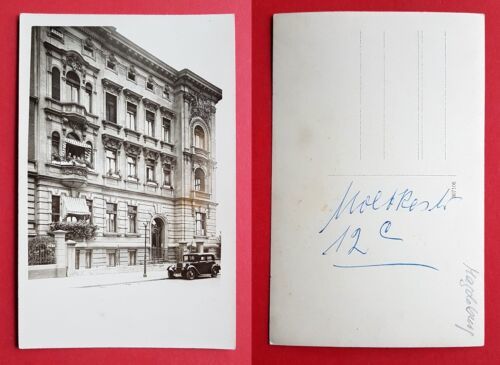 Moltkestr
12 c
Magdeburg